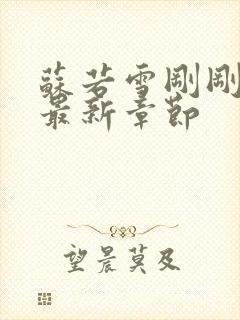 蘇若雪剛剛
最新章節
望晨莫及